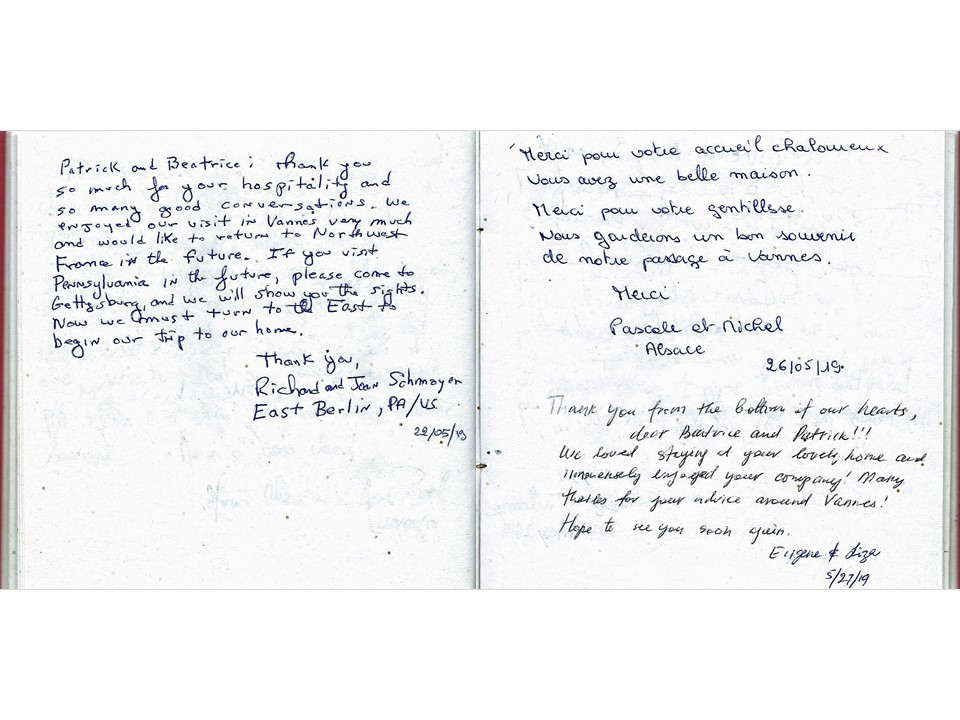 Patrick and Beatrice; thank you
so much for your hospitality and
so many good conversations. We
enjoyed our visit in Vannes very much
and would like to return to Northwest
France in the future. If you visit
Pennsylvania in the future, please come to
Gettysburg, and we will show you the sights.
Now we must turn to the East to
begin our trip to our home.
Thank you,
Richard and Jean Schmoyer
East Berlin, PA/US
22/05/19
Merci pour votre accueil chaloureux
Vous avez une belle maison.
Merci pour votre gentillesse.
Nous garderons un bon souvenir
de notre passage à Vannes.
Merci
Pascale et Michel
Alsace
26/05/19
Thank you from the bottom of our hearts,
dear Beatrice and Patrick!!!
We loved staying at your lovely home and
immensely enjoyed your company! Many
thanks for your advice around Vannes!
Hope to see you soon again.
Eugene & Liza
5/27/19